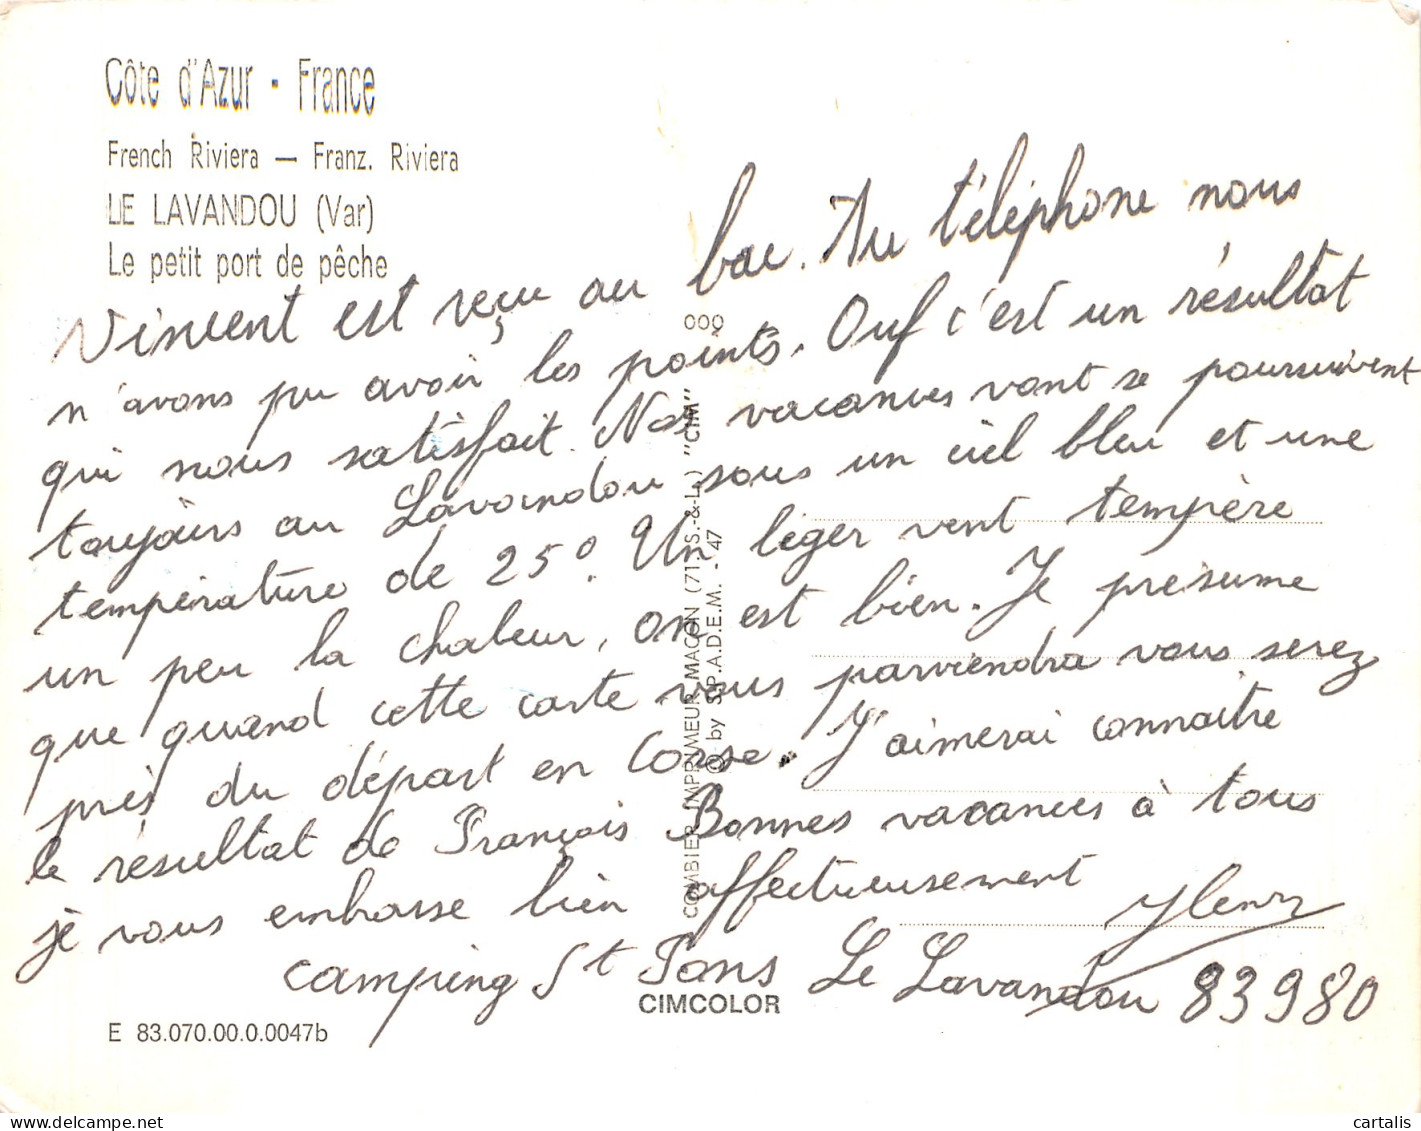 Côte d'Azur - France
French Riviera — Franz. Riviera
LE LAVANDOU (Var)
Le petit port de pêche
Vincent est reçu au bac. Au téléphone nous
n'avons pu avoir les points. Ouf c'est un résultat
qui nous satisfait. Nos vacances vont se poursuivent
toujours au Lavandou sous un ciel bleu et une
température de 25°. Un léger vent tempère
un peu la chaleur, on est bien. Je présume
que quand cette carte vous parviendra vous serez
près du départ en Corse. J'aimerai connaître
le résultat de François Bonnes vacances à tous
je vous embrasse bien affectueusement
camping St Pons Le Lavandou 83980
000
COMBIER IMPRIMEUR MACON (71-S.-&-L.) "CIM"
© by S.P.A.D.E.M. - 47
CIMCOLOR
E 83.070.00.0.0047b
cartalis